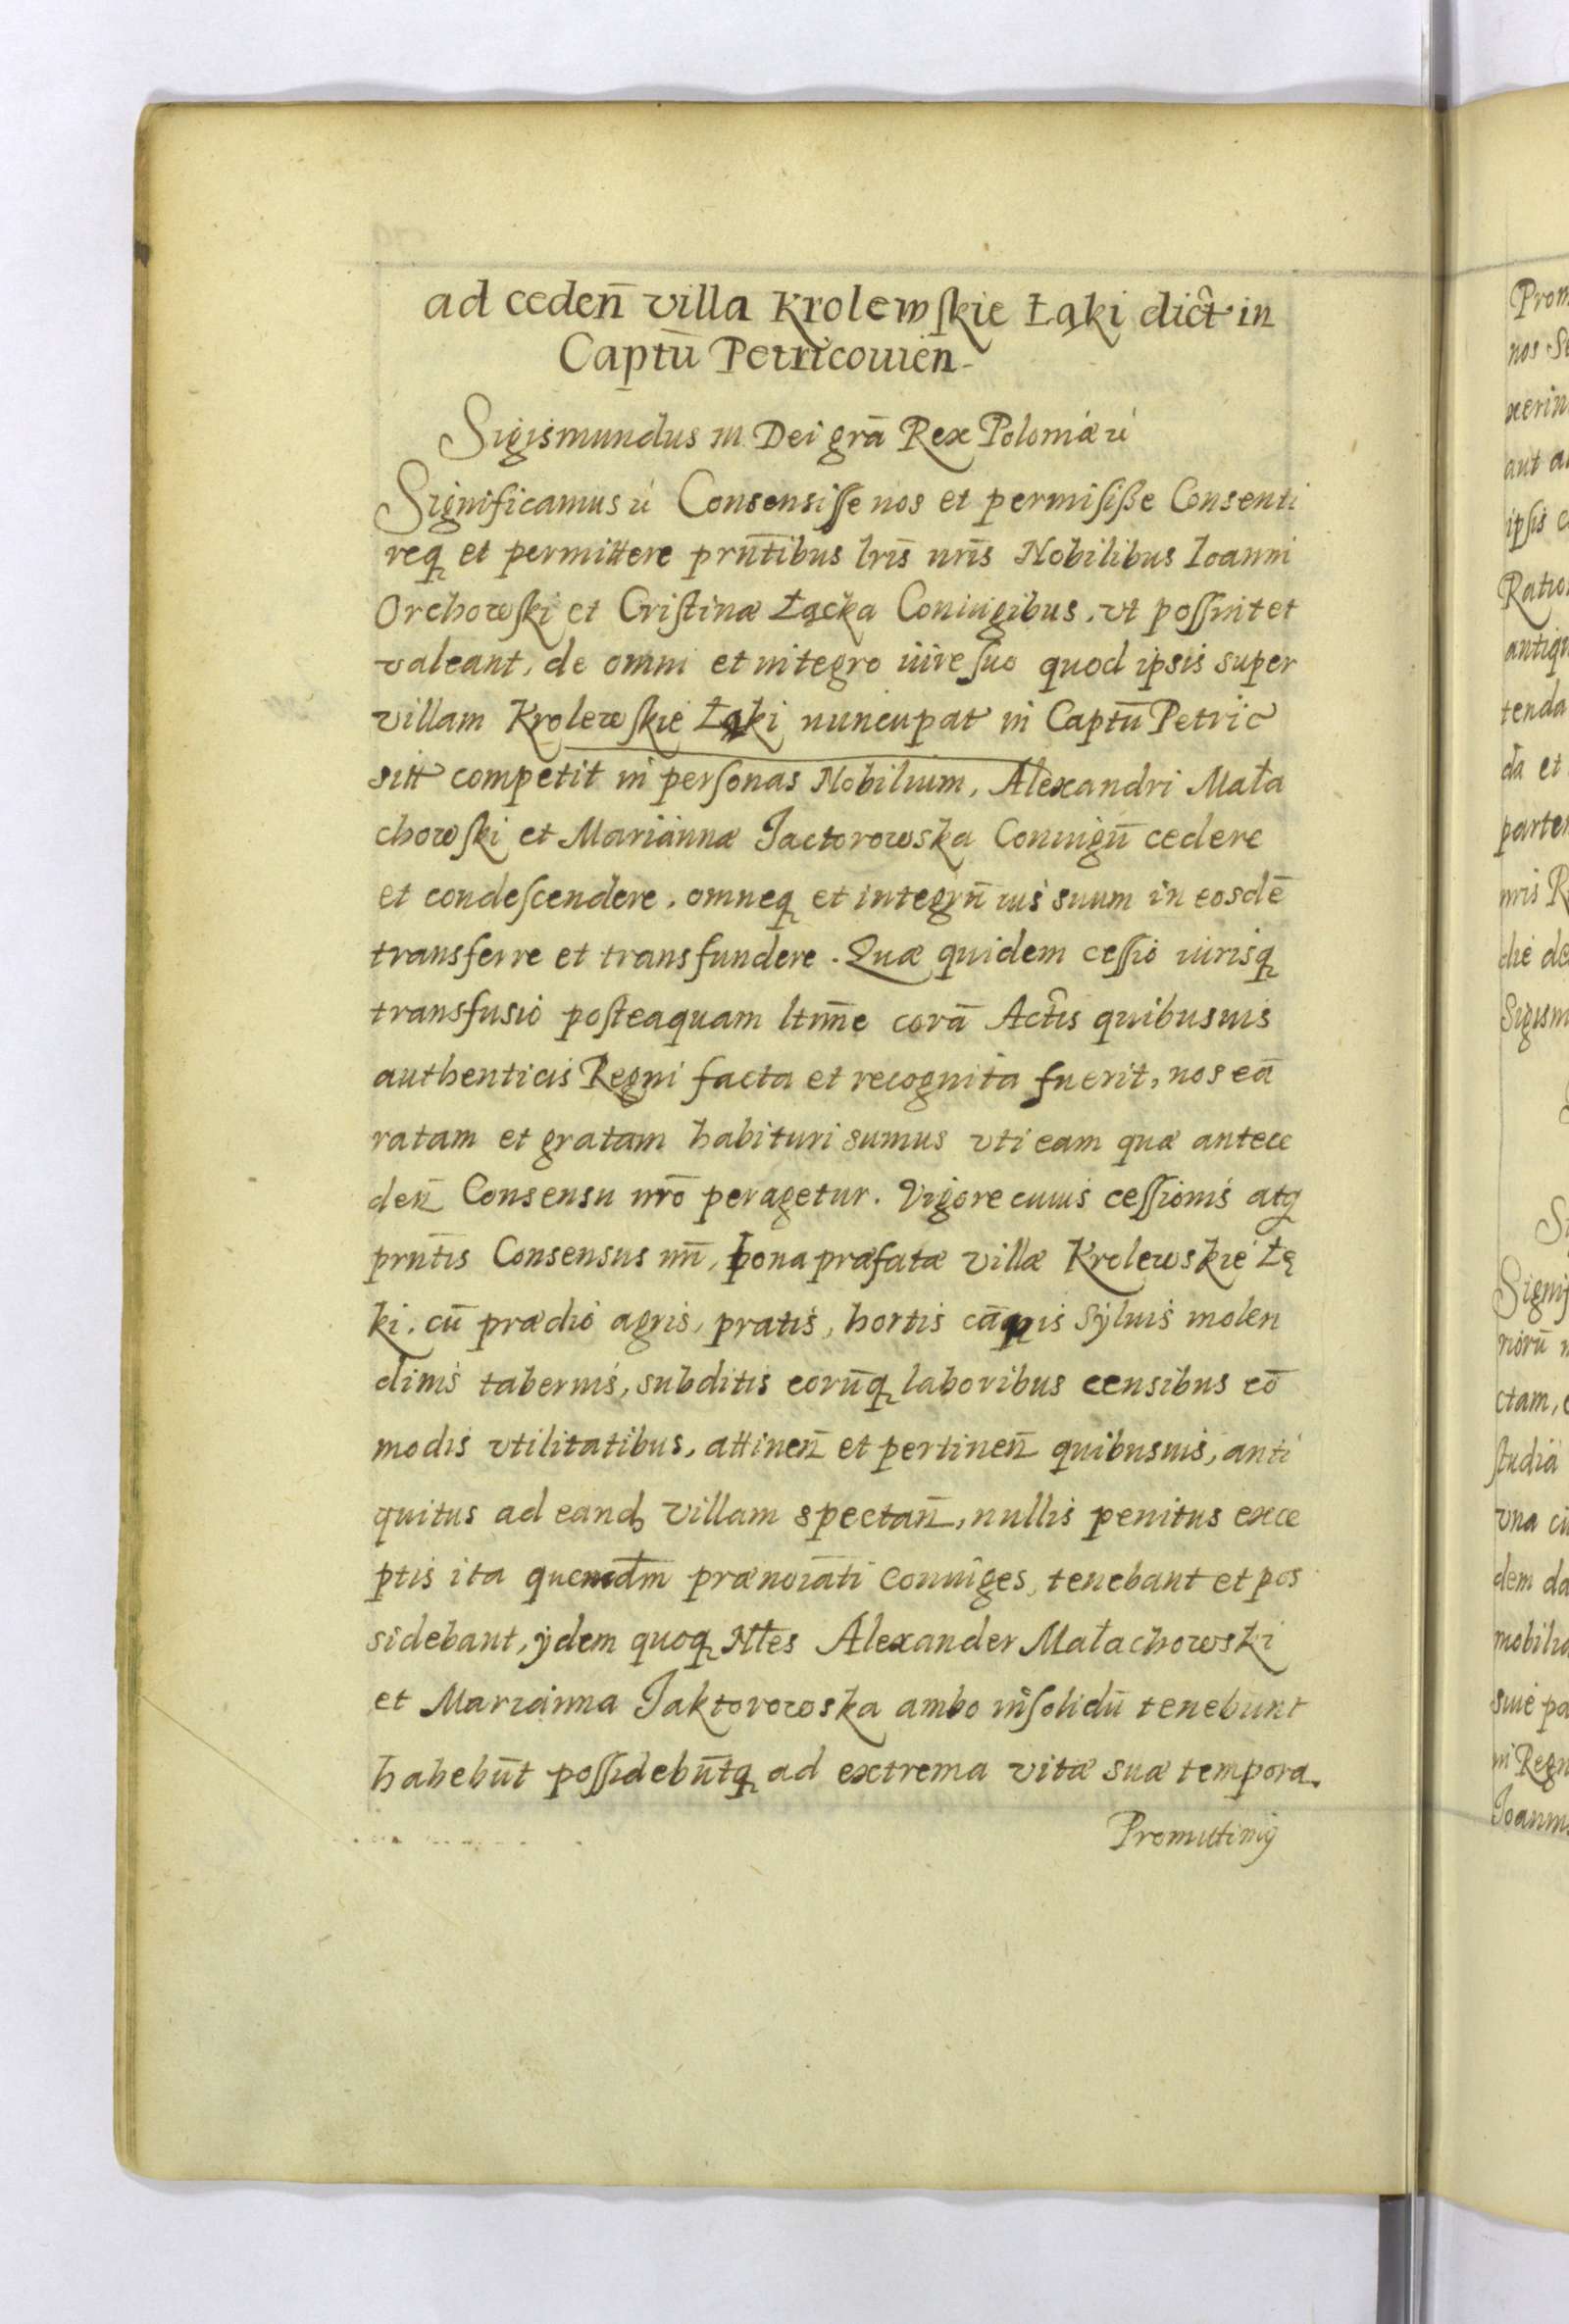 ad ceden̄ villa Krolewskie Łąki dict in
Captū Petricouien-
Sigismundus III Dei grā Rex Poloniæ
Significamus Consensisse nos et permisiße Consenti
reqꝫ et permittere prn̄tibus lrīs nrīs Nobilibus Ioanni
Orchowski et Cristinæ Łącka Coniugibus, vt possint et
valeant, de omni et integro iure suo quod ipsis super
villam Krolewskie Łąki nuncupat in Captū Petric
sitt competit in personas Nobilium, Alexandri Mała
chowski et Mariannæ Jactorowska Coniugū cedere
et condescendere, omneqꝫ et integrū ius suum in eosdē
transferre et transfundere. Quæ quidem cessio iurisqꝫ
transfusio posteaquam ltm̄e corā Actis quibusuis
authenticis Regni facta et recognita fuerit, nos eā
ratam et gratam habituri sumus vti eam quæ antece
den̄ Consensu nrō peragetur. Vigore cuius cessionis atqꝫ
prn̄tis Consensus nrī, bona præfatæ villæ Krolewskie Łę
ki, cū prædio agris, pratis, hortis cāpis syluis molen
dinis tabernis, subditis eorūqꝫ laboribus censibus cō
modis vtilitatibus, attinen̄ et pertinen̄ quibusuis, anti
quitus ad eandꝫ villam spectan̄, nullis penitus exce
ptis ita quemadm̄ prænoīati coniuges, tenebant et pos
sidebant, ÿdem quoqꝫ Nłes Alexander Małachowski
et Marianna Jaktorowska ambo insolidū tenebunt
habebūt possidebūtqꝫ ad extrema vitæ suæ tempora.
Promittimꝰ
Prom
nos S
xerin
aut a
ipsis c
Ratio
antiqu
tenda
dā et
parte
nris R
die de
Sigism
Signif
riorū
ctam,
studia
vna cū
dem da
mobiliu
siue pa
ni Regn
Joannis